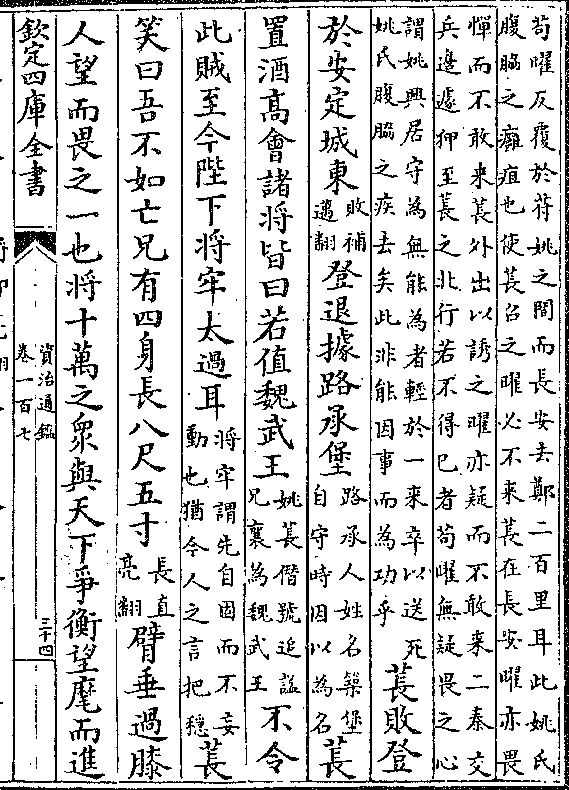 苟曜反覆於苻姚之間而長安去鄭二百里耳此姚氏
腹脇之癰疽也使萇召之曜必不来萇在長安曜亦畏
憚而不敢来萇外出以誘之曜亦疑而不敢来二秦交
兵邊遽狎至萇之北行若不得巳者苟曜無疑畏之心
謂姚興居守為無能為者輕於一来卒以送死
姚氏腹脇之疾去矣此非能因事而為功乎萇敗登
於安定城東敗補邁翻登退據路承堡路承人姓名築堡自守時因以為名萇
置酒高會諸將皆曰若值魏武王姚萇僭號追謚兄襄為魏武王不令
此賊至今陛下將牢太過耳將牢謂先自固而不妄動也猶今人之言把穩萇
笑曰吾不如亡兄有四身長八尺五寸長直亮翻臂垂過膝
人望而畏之一也將十萬之衆與天下爭衡望麾而進
欽定四庫全書
資治通鑑
卷一百七
三十四